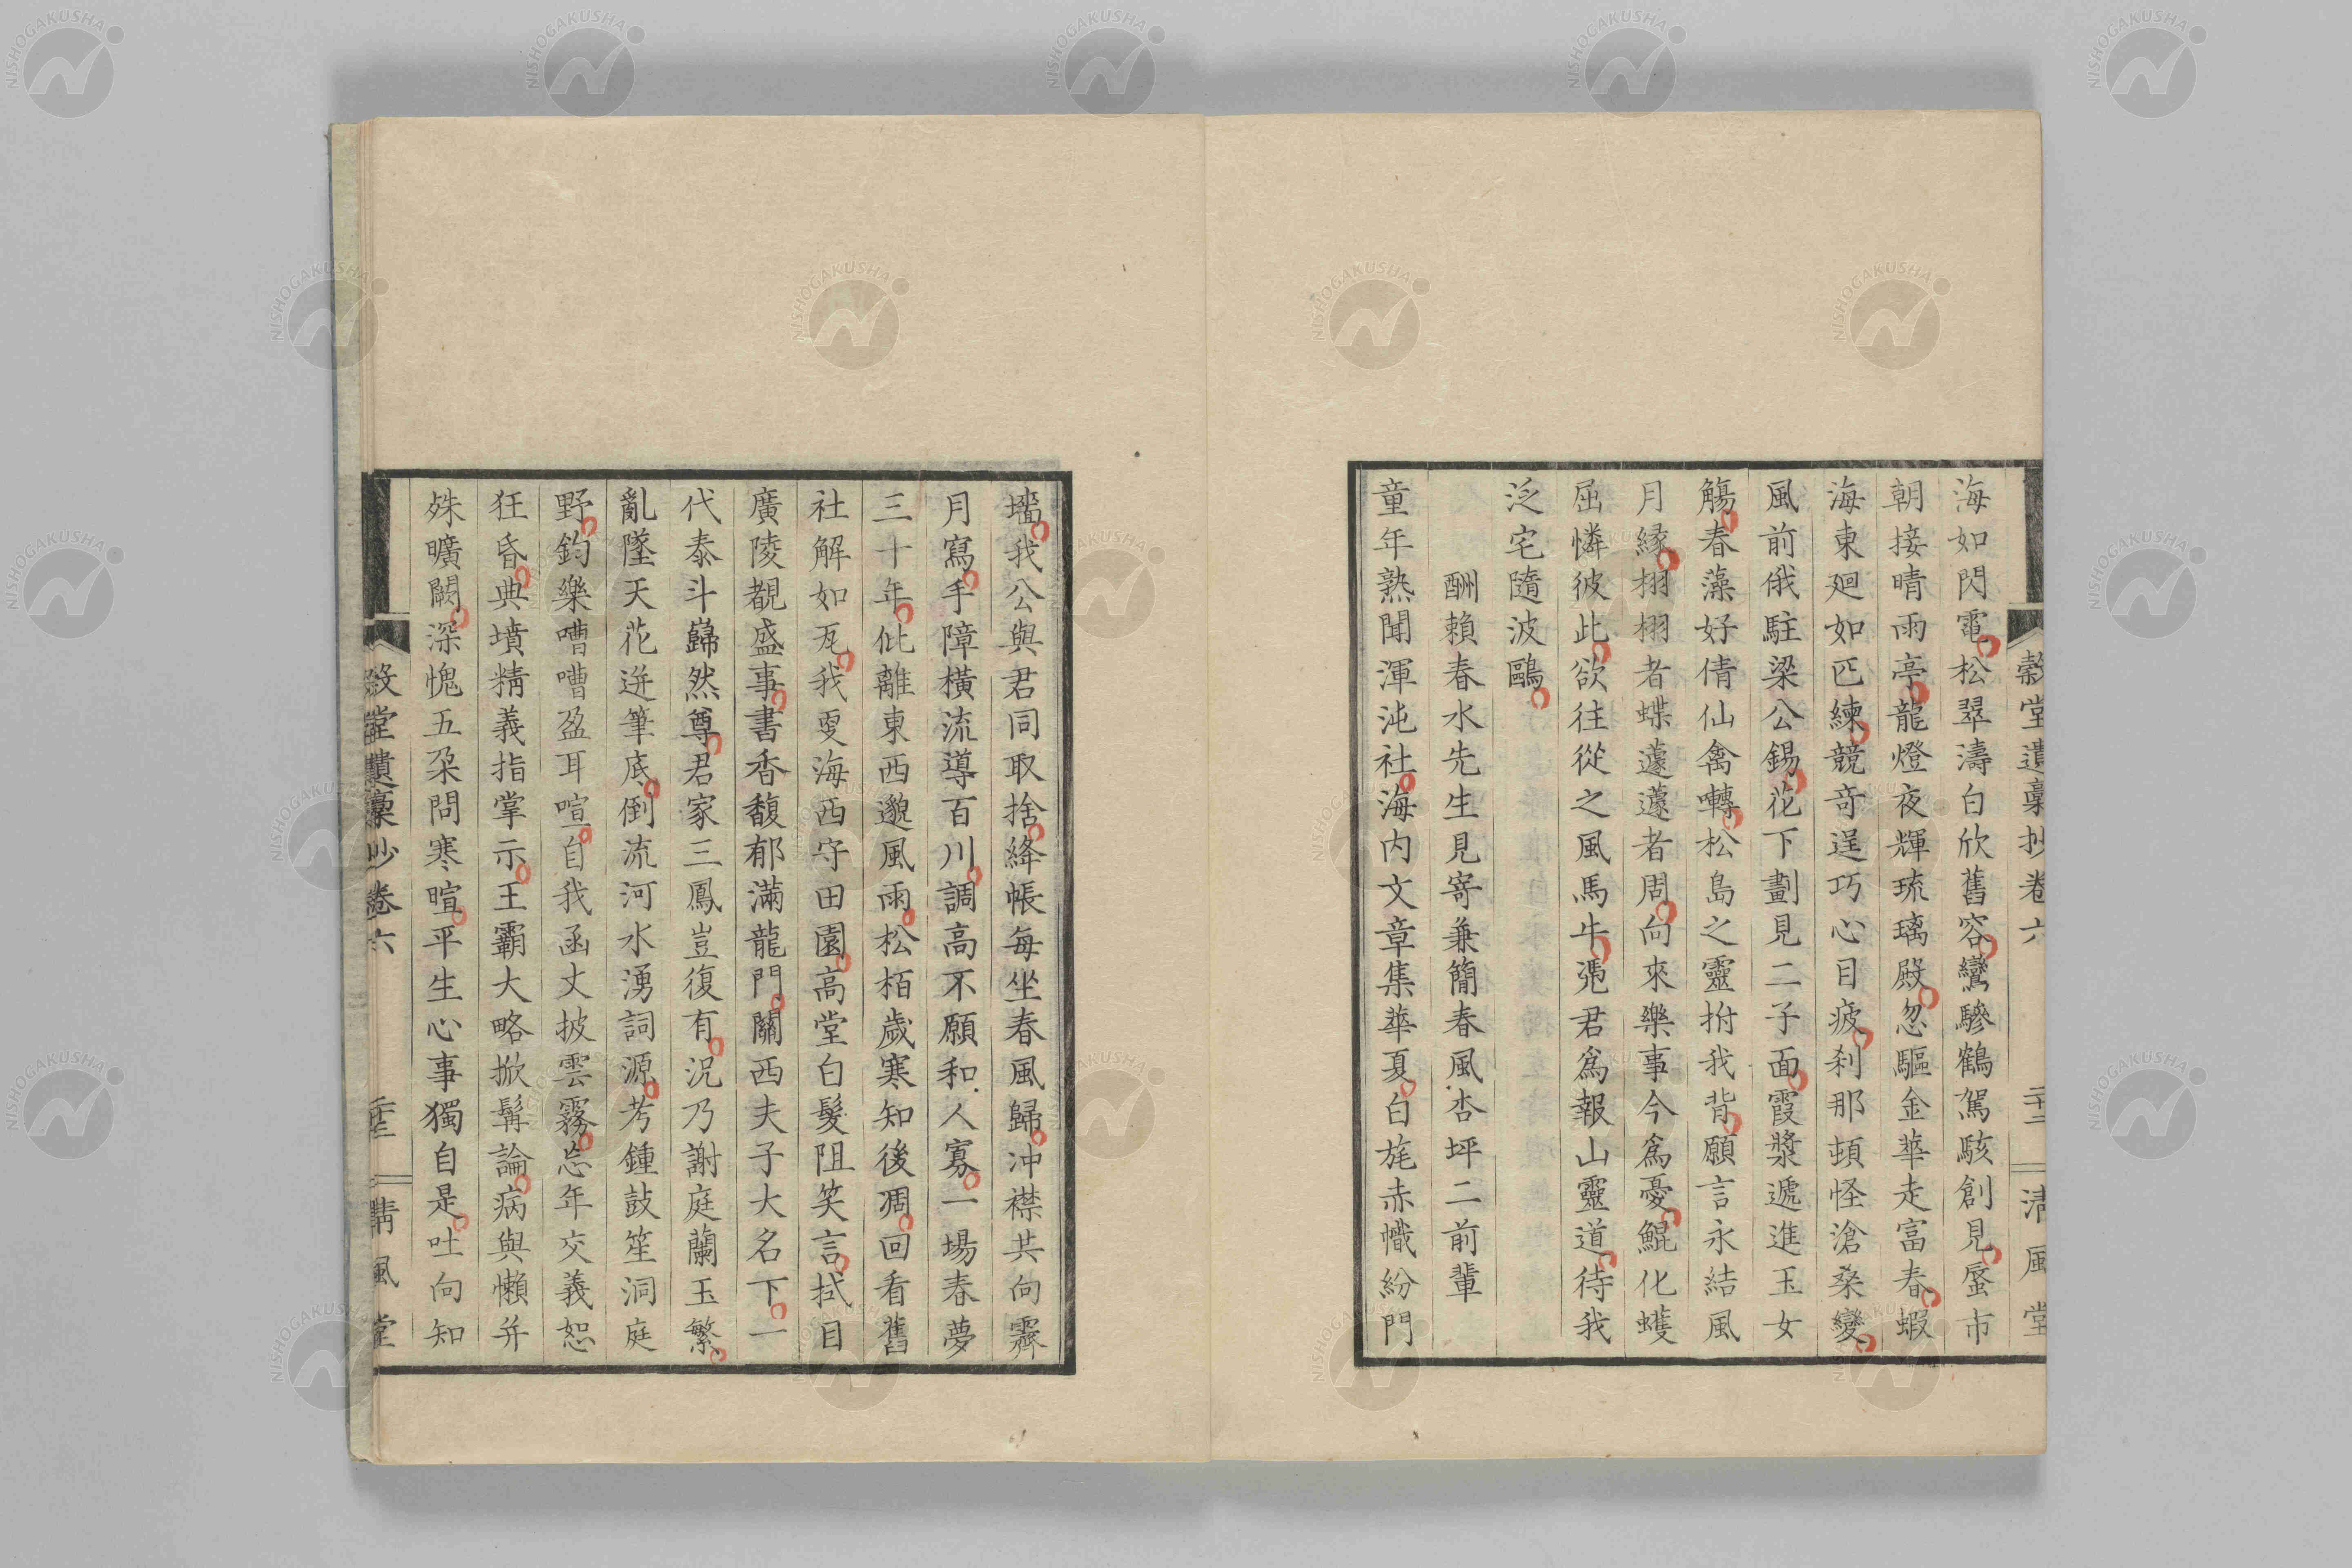 穀堂遺稾抄卷六 二十二 清風堂
海如閃電松翠濤白欣舊容鸞驂鶴駕駭創見蜃市
朝接晴雨亭龍燈夜輝琉璃殿忽驅金華走富春蝦
海東廻如匹練競奇逞巧心目疲刹那頓怪滄桑變
風前俄駐梁公錫花下劃見二子面霞漿遞進玉女
觴春藻好倩仙禽囀松島之靈拊我背願言永結風
月縁栩栩者蝶蘧蘧者周向來樂事今爲憂鯤化蠖
屈憐彼此欲往從之風馬牛憑君爲報山靈道待我
泛宅隨波鷗
酬賴春水先生見寄兼簡春風杏坪二前輩
童年熟聞渾沌社海内文章集華夏白旄赤幟紛門
墻我公與君同取捨絳帳每坐春風歸沖襟共向霽
月寫手障橫流導百川調高不願和人寡一場春夢
三十年仳離東西邈風雨松栢歲寒知後凋回看舊
社解如瓦我更海西守田園高堂白髮阻笑言拭目
廣陵覩盛事書香馥郁滿龍門關西夫子大名下一
代泰斗巋然尊君家三鳳豈復有況乃謝庭蘭玉繁
亂墜天花迸筆底倒流河水湧詞源考鍾鼓笙洞庭
野鈞樂嘈嘈盈耳喧自我函丈披雲霧忘年交義恕
狂昏典墳精義指掌示王霸大略掀髯論病與懶并
姝曠闕深愧五朶問寒暄平生心事獨自是吐向知
穀堂遺稾抄卷六 二十三 清風堂
NISHOGAKUSHA